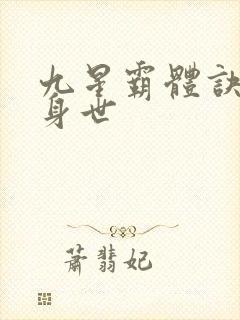 九星霸體訣
身世
蕭翡妃